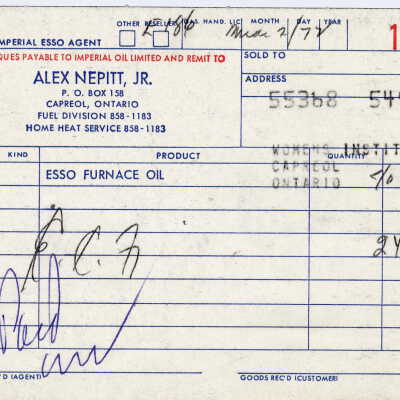 OTHER RESELLER GAS. HAND. LIC MONTH DAY YEAR
IMPERIAL ESSO AGENT
Mar 2/72
1
QUES PAYABLE TO IMPERIAL OIL LIMITED AND REMIT TO
SOLD TO
ALEX NEPITT, JR.
P. O. BOX 158
CAPREOL, ONTARIO
FUEL DIVISION 858-1183
HOME HEAT SERVICE 858-1183
ADDRESS
55368 54
WOMENS INSTIT
CAPREOL
ONTARIO
KIND PRODUCT QUANTITY
ESSO FURNACE OIL
24
Paid
'D (AGENT)
GOODS REC'D (CUSTOMER)